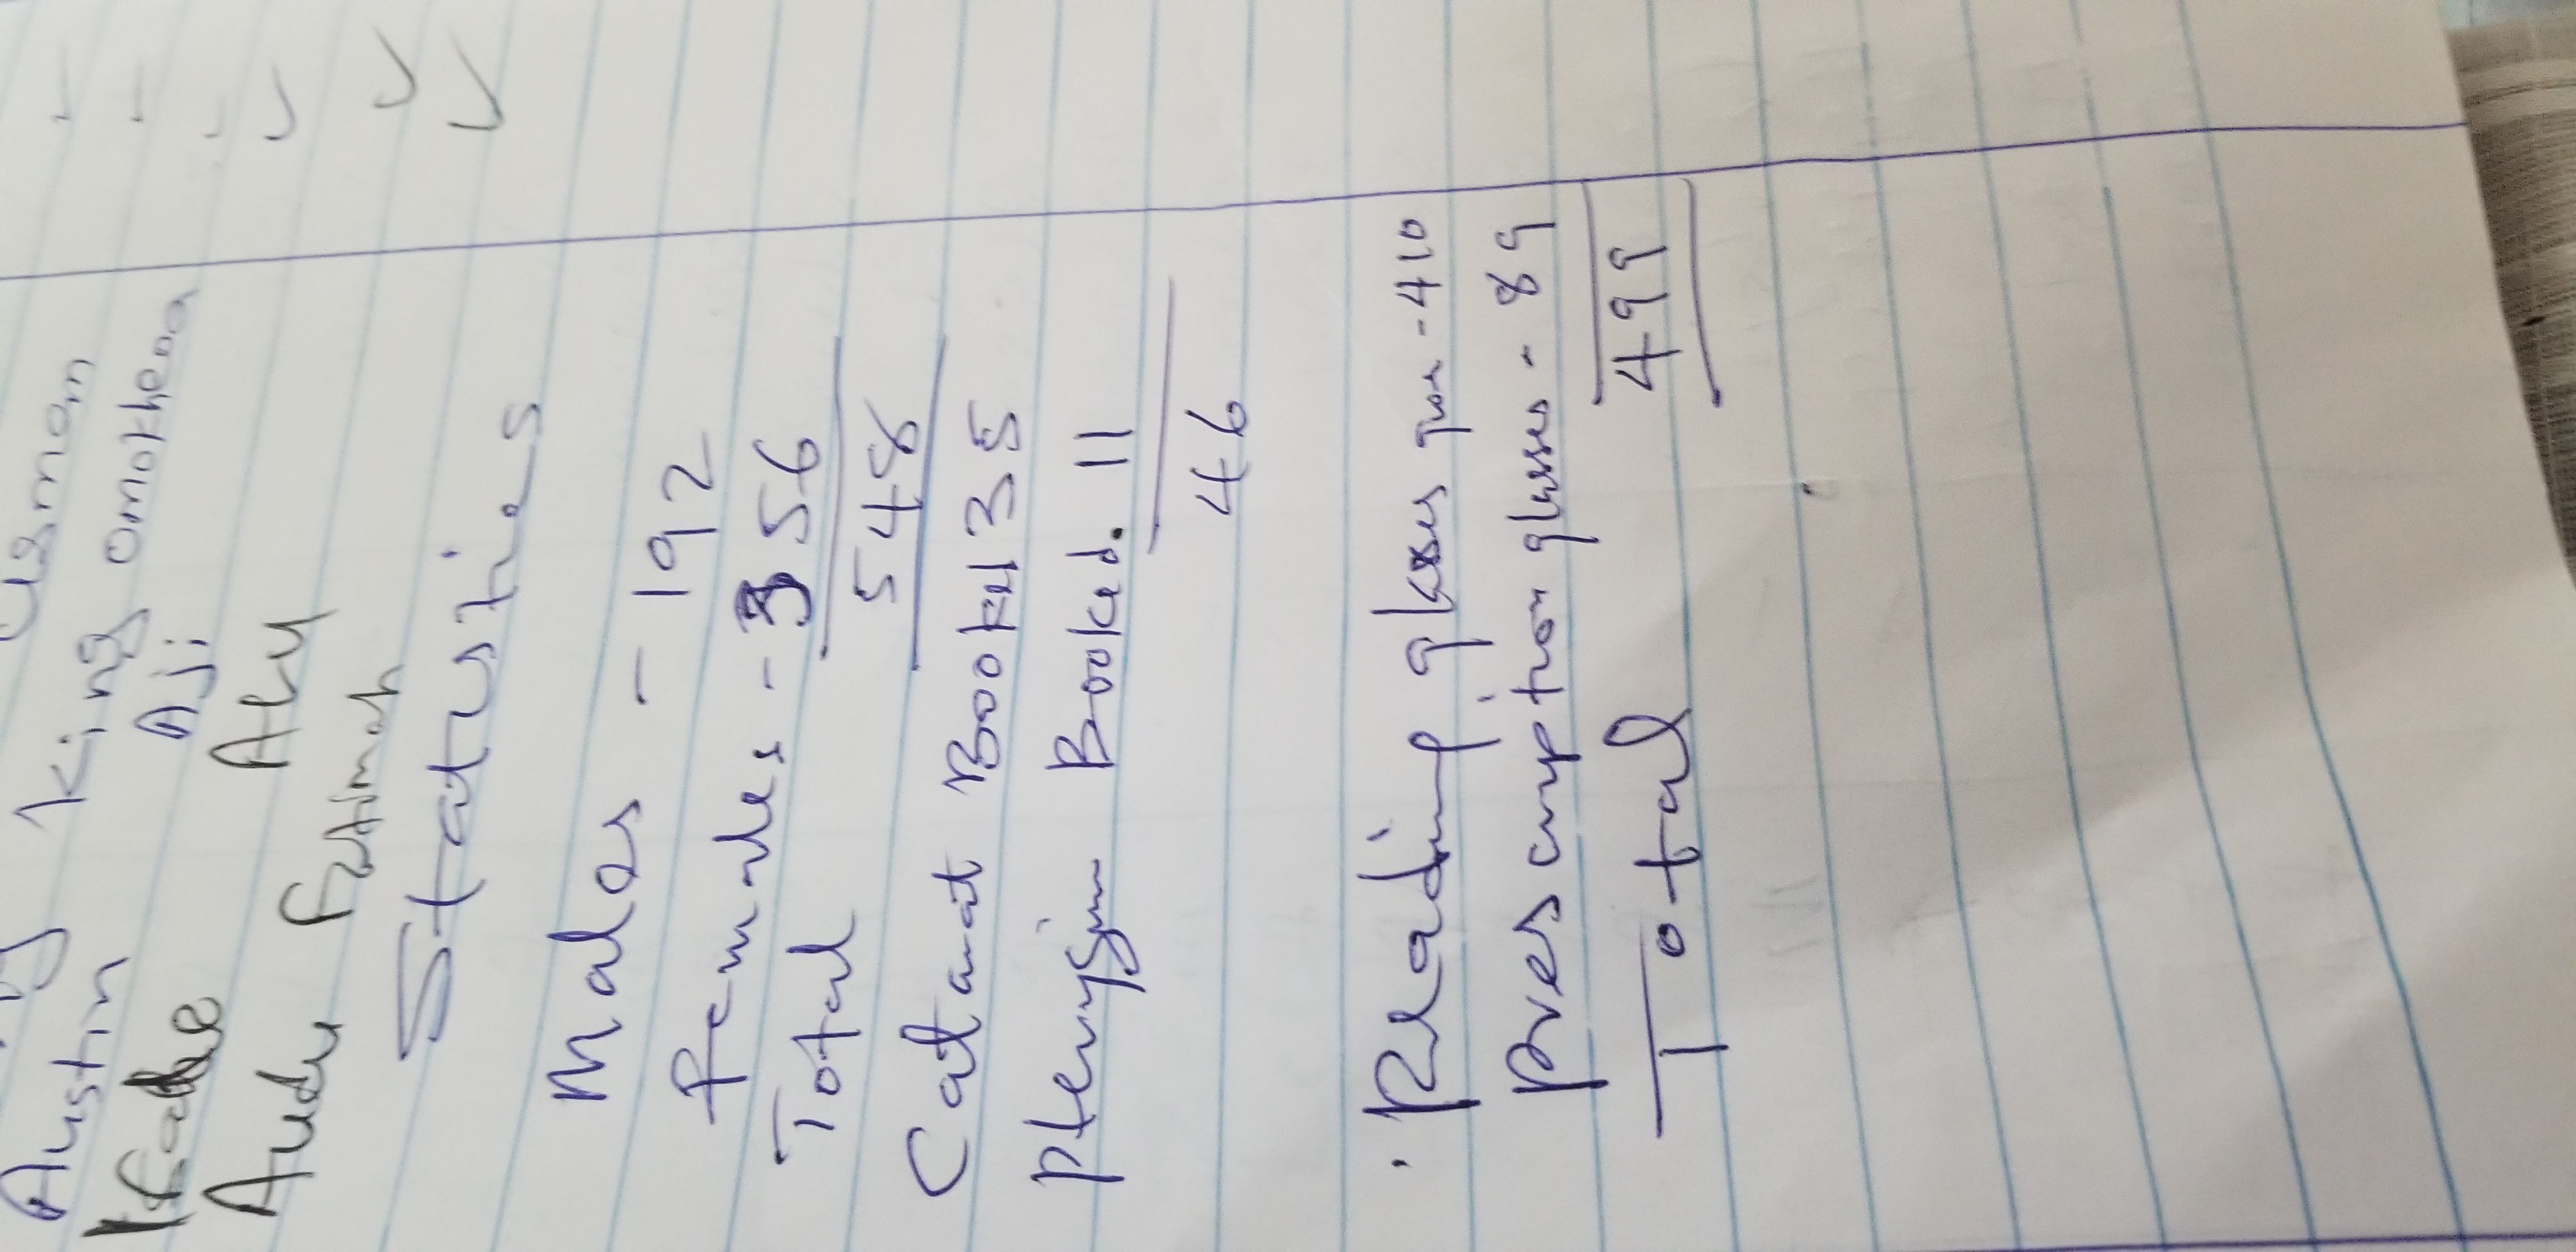 Usman
Austin King Omokhoa
Aji
Audu Fatimah
Statisties
Males - 192
Females - 356
Total 548
Cataract Booked 35
Pterygium Booked. 11
46
. Reading glasses given - 410
Prescription glasses - 89
Total 499